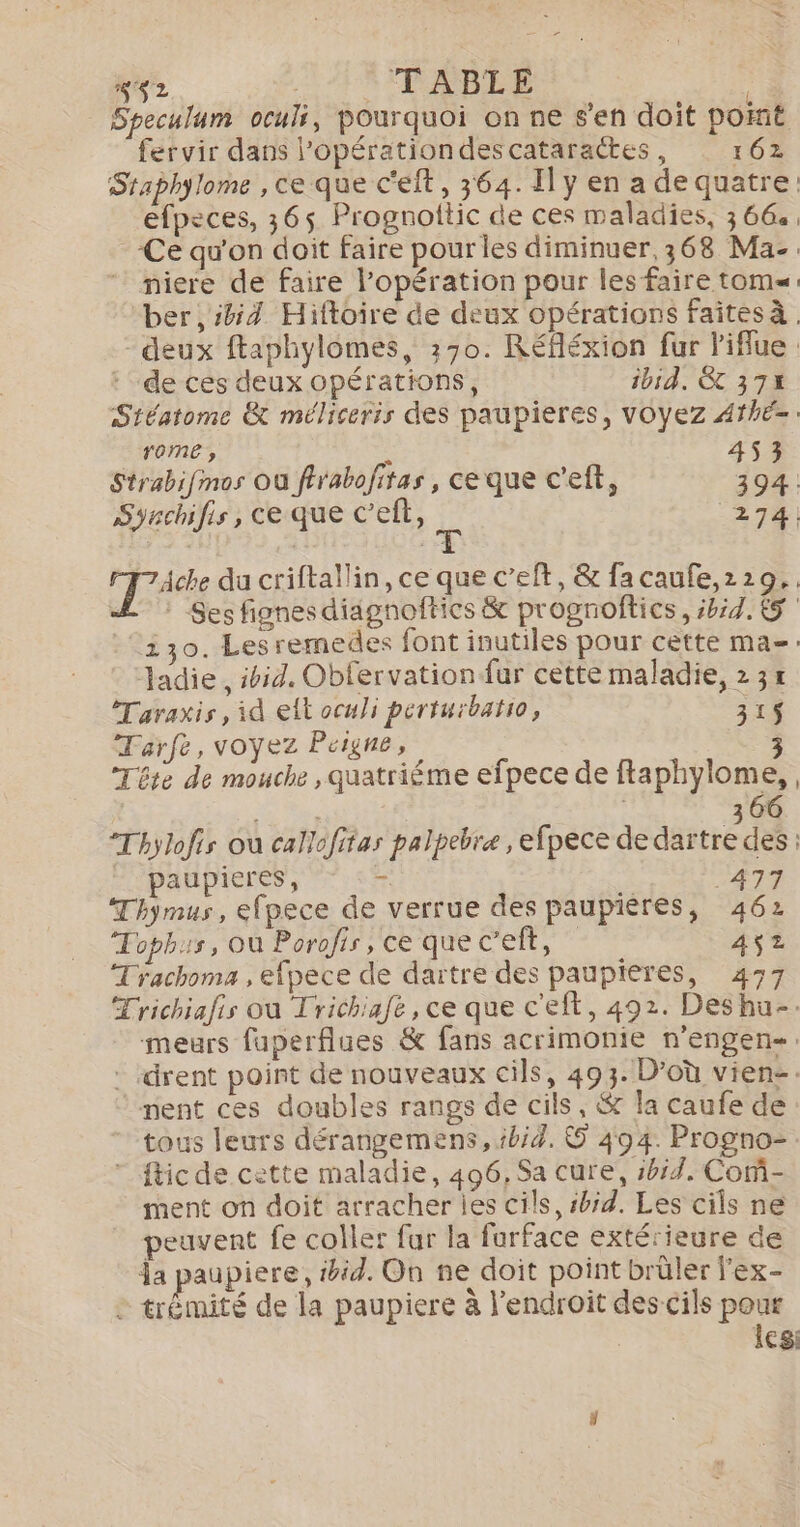 552 TABLE
Speculum oculi, pourquoi on ne s'en doit point
ſervir dans l'opération des cataractes, 162
Staphylome, ce que c'eſt, 364. Il y en a de quatre
eſpeces, 365 Prognoſtic de ces maladies, 366.
Ce qu'on doit faire pour les diminuer, 368 Ma-
niere de faire l'opération pour les faire tom-
ber, ibid Hiſtoire de deux opérations faites à
deux ſtaphylomes, 370. Réfléxion ſur l'iſſue
de ces deux opérations, ibid. & 371
Stéatome & méliceris des paupieres, voyez Athé-
rome, 453
Strabiſmos ou ſtraboſitas, ce que c'eſt, 394
Synchiſis, ce que c'eſt, 274
T
Tâche du criſtallin, ce que c'eſt, & ſa cauſe, 229.
Ses ſignes diagnoſtics & prognoſtics, ibid. &
230. Les remedes ſont inutiles pour cette ma-
ladie, ibid. Obſervation ſur cette maladie, 231
Taraxis, id eſt oculi perturbatio, 315
Tarſe, voyez Peigne, 3
Tête de mouche, quatriéme eſpece de ſtaphylome,
366
Thyloſis ou calloſitas palpebræ, eſpece de dartre des
paupieres, 477
Thymus, eſpece de verrue des paupieres, 462
Tophus, ou Poroſis, ce que c'eſt, 452
Trachoma, eſpece de dartre des paupieres, 477
Trichiaſis ou Trichiaſe, ce que c'eſt, 492. Des hu-
meurs ſuperflues & ſans acrimonie n'engen-
drent point de nouveaux cils, 493. D'où vien-
nent ces doubles rangs de cils, & la cauſe de
tous leurs dérangemens, ibid. & 494. Progno-
ſtic de cette maladie, 496, Sa cure, ibid. Com-
ment on doit arracher les cils, ibid. Les cils ne
peuvent ſe coller ſur la ſurface extérieure de
la paupiere, ibid. On ne doit point brûler l'ex-
trémité de la paupiere à l'endroit des cils pour
les